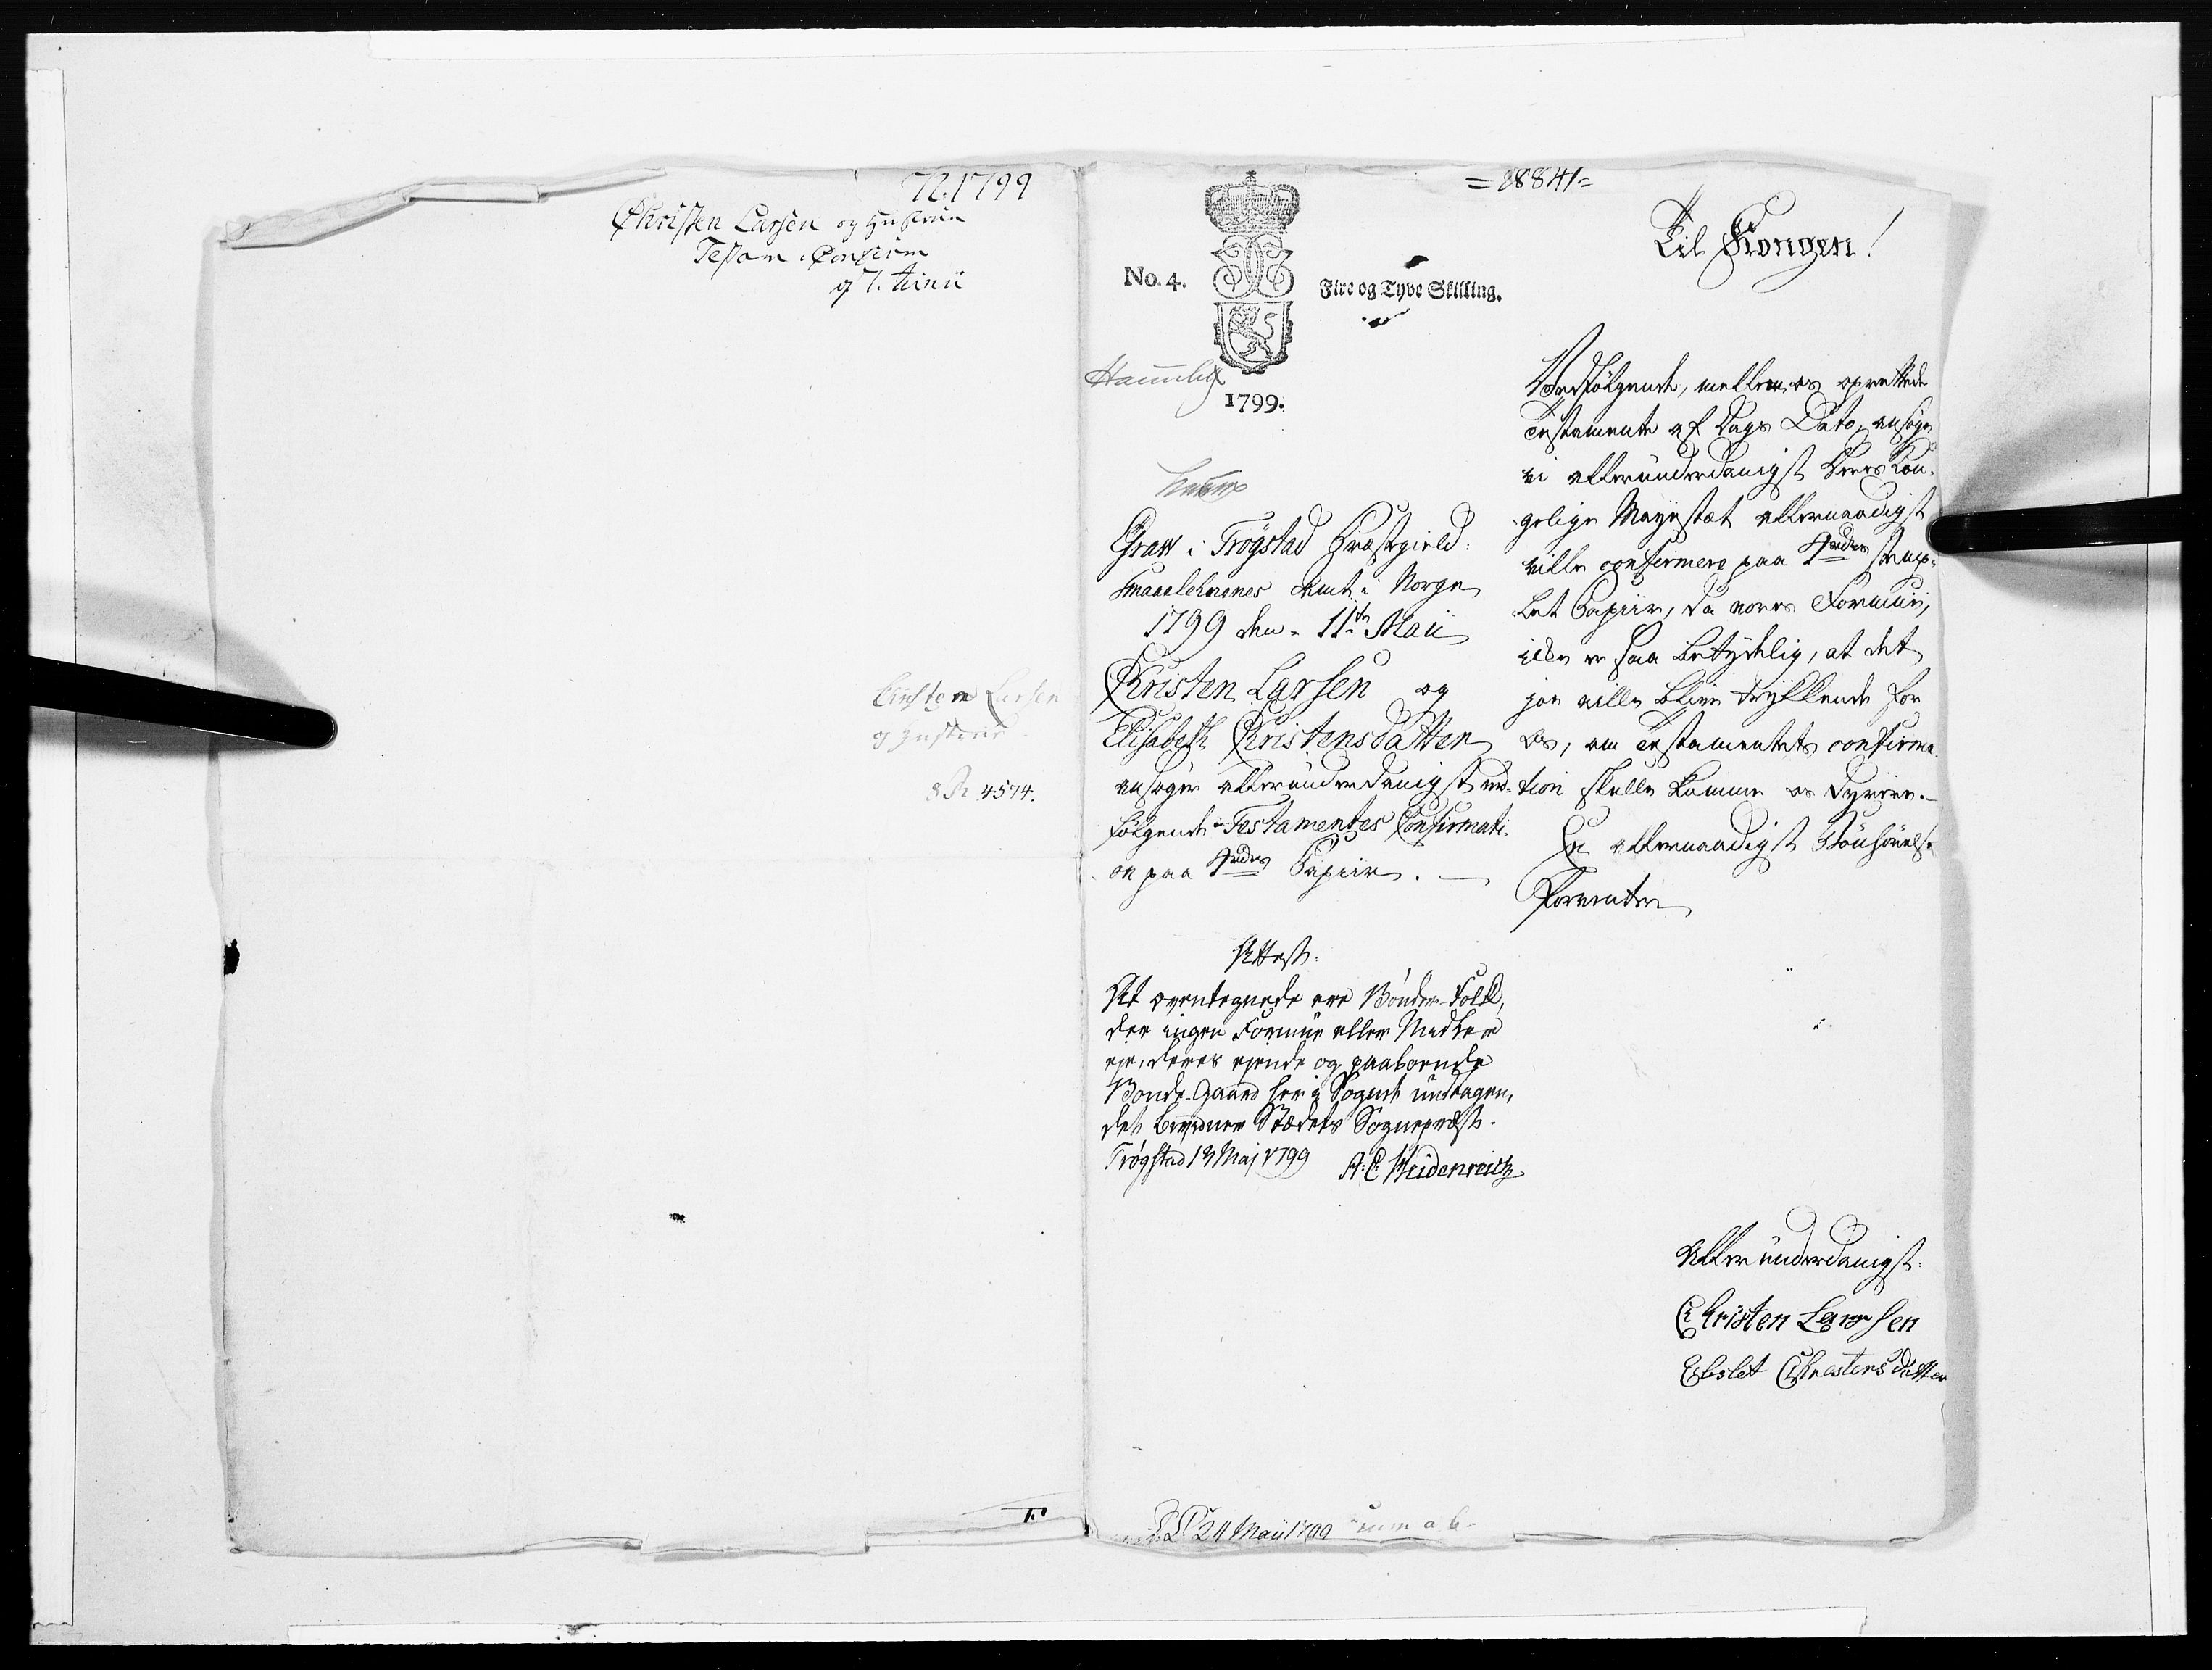 72.1799
Christen Larsen og Hustrue
Testam: Confirm
af 7. Junii
Christen Larsen
og Hustrue
8 R 4574.
=28841=
No. 4.
Fire og Tyve Skilling.
1799.
Graw i Trögstad Præstegield:
Smaalehnenes Amt i Norge
1799 den 11te Maii
Christen Larsen og
Elisabeth Christensdatter
ansöger alleründerdanigst ved-
følgende Testamentes Confirmati-
on paa 4rdes Papiir.
Attest:
At ovenbegnede ere Bönder-Folk,
der ingen Formue eller Midler
eje, deres ejende og paaboende
Bonde-Gaard her i Sognet undtagen,
det bevidner Stædets Sognepræst.
Trøgstad 13 Maj 1799 A: C Heidenreich
24 Maii 1799
Til Kongen!
Vedfölgende, mellem os oprettede
Testamente af Dags Dato, ansöge
vi alleründerdanigst Deres Kon-
gelige Mayestæt allernaadigst
ville confirmere paa 4rdes stemp-
let Papiir, da vores Formüe,
ikke er saa betydelig, at det
joe ville blive trykkende for
os, om Testamentets confirma-
tion skulle komme os dyrere.
En allernaadigst Bönhörelse
Forventer
Alleründerdanigst
Christen Larsen
Elisbet Christensdatter